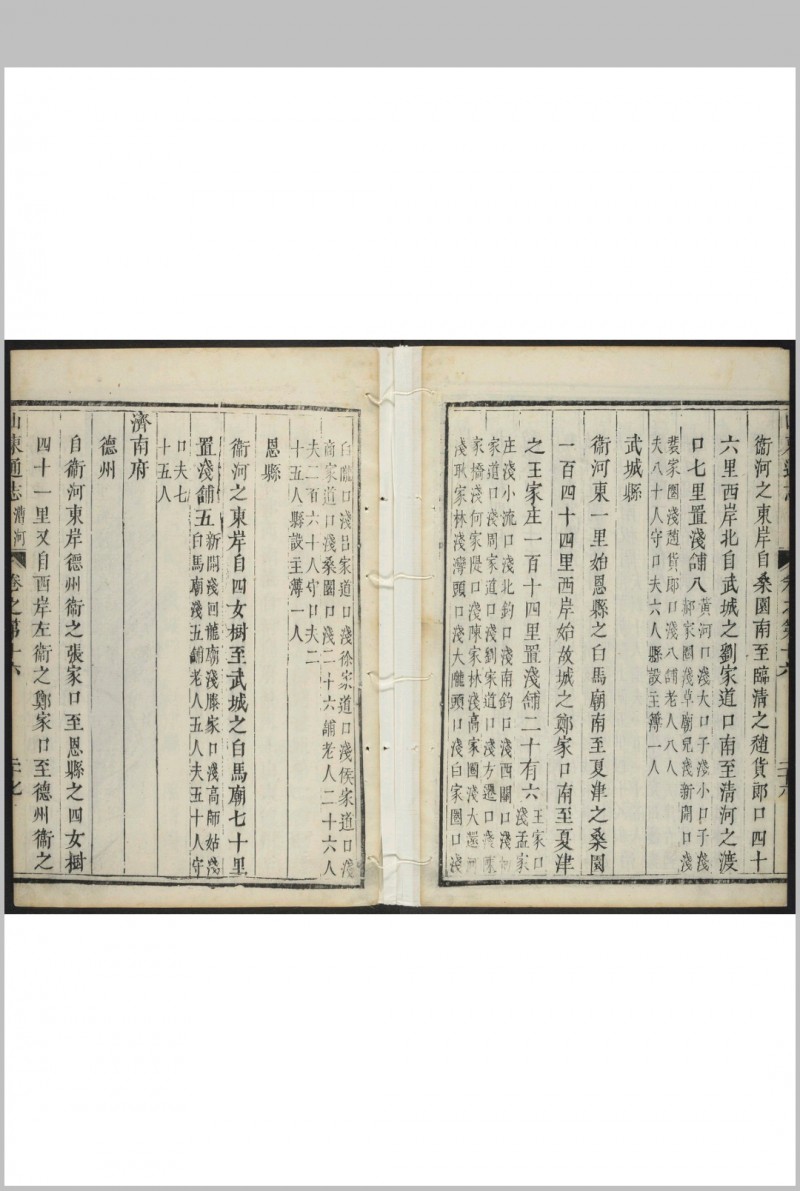 衞河之東岸自桑園南至臨清之趙貨郎口四十
六里西岸北自武城之劉家道口南至清河之渡
口七里置淺舖八
黃河口淺大口子淺小口子淺
郝家圈淺草廟兒淺新開口淺
裴家圈淺趙貨郎口淺八舖老人八人
夫八十人守口夫六人縣設主薄一人
武城縣
衞河東一里始恩縣之白馬廟南至夏津之桑園
一百四十四里西岸始故城之鄭家口南至夏津
之王家庄一百十四里置淺舖二十有六
王家口
淺孟家
庄淺小流口淺北釣口淺南釣口淺西關口淺
家道口淺周家道口淺劉家道口淺方遷口淺陳
家橋淺何家隄口淺陳家林淺高家圈淺大還
淺耿家林淺灣頭口淺大龍頭口淺白家圈口淺
白龍口淺吕家道口淺徐家道口淺侯家道口淺
商家道口淺桑園口淺二十六舖老人二十六人
夫二百六十人守口夫二
十五人縣設主薄一人
恩縣
衞河之東岸自四女樹至武城之白馬廟七十里
置淺舖五
新開淺回龍廟淺滕家口淺高師姑淺
白馬廟淺五舖老人五人夫五十人守
口夫七
十五人
濟南府
德州
自衞河東岸德州衞之張家口至恩縣之四女樹
四十一里又自西岸左衞之鄭家口至德州衞之
山東通志
漕河
卷之第十六
二十七